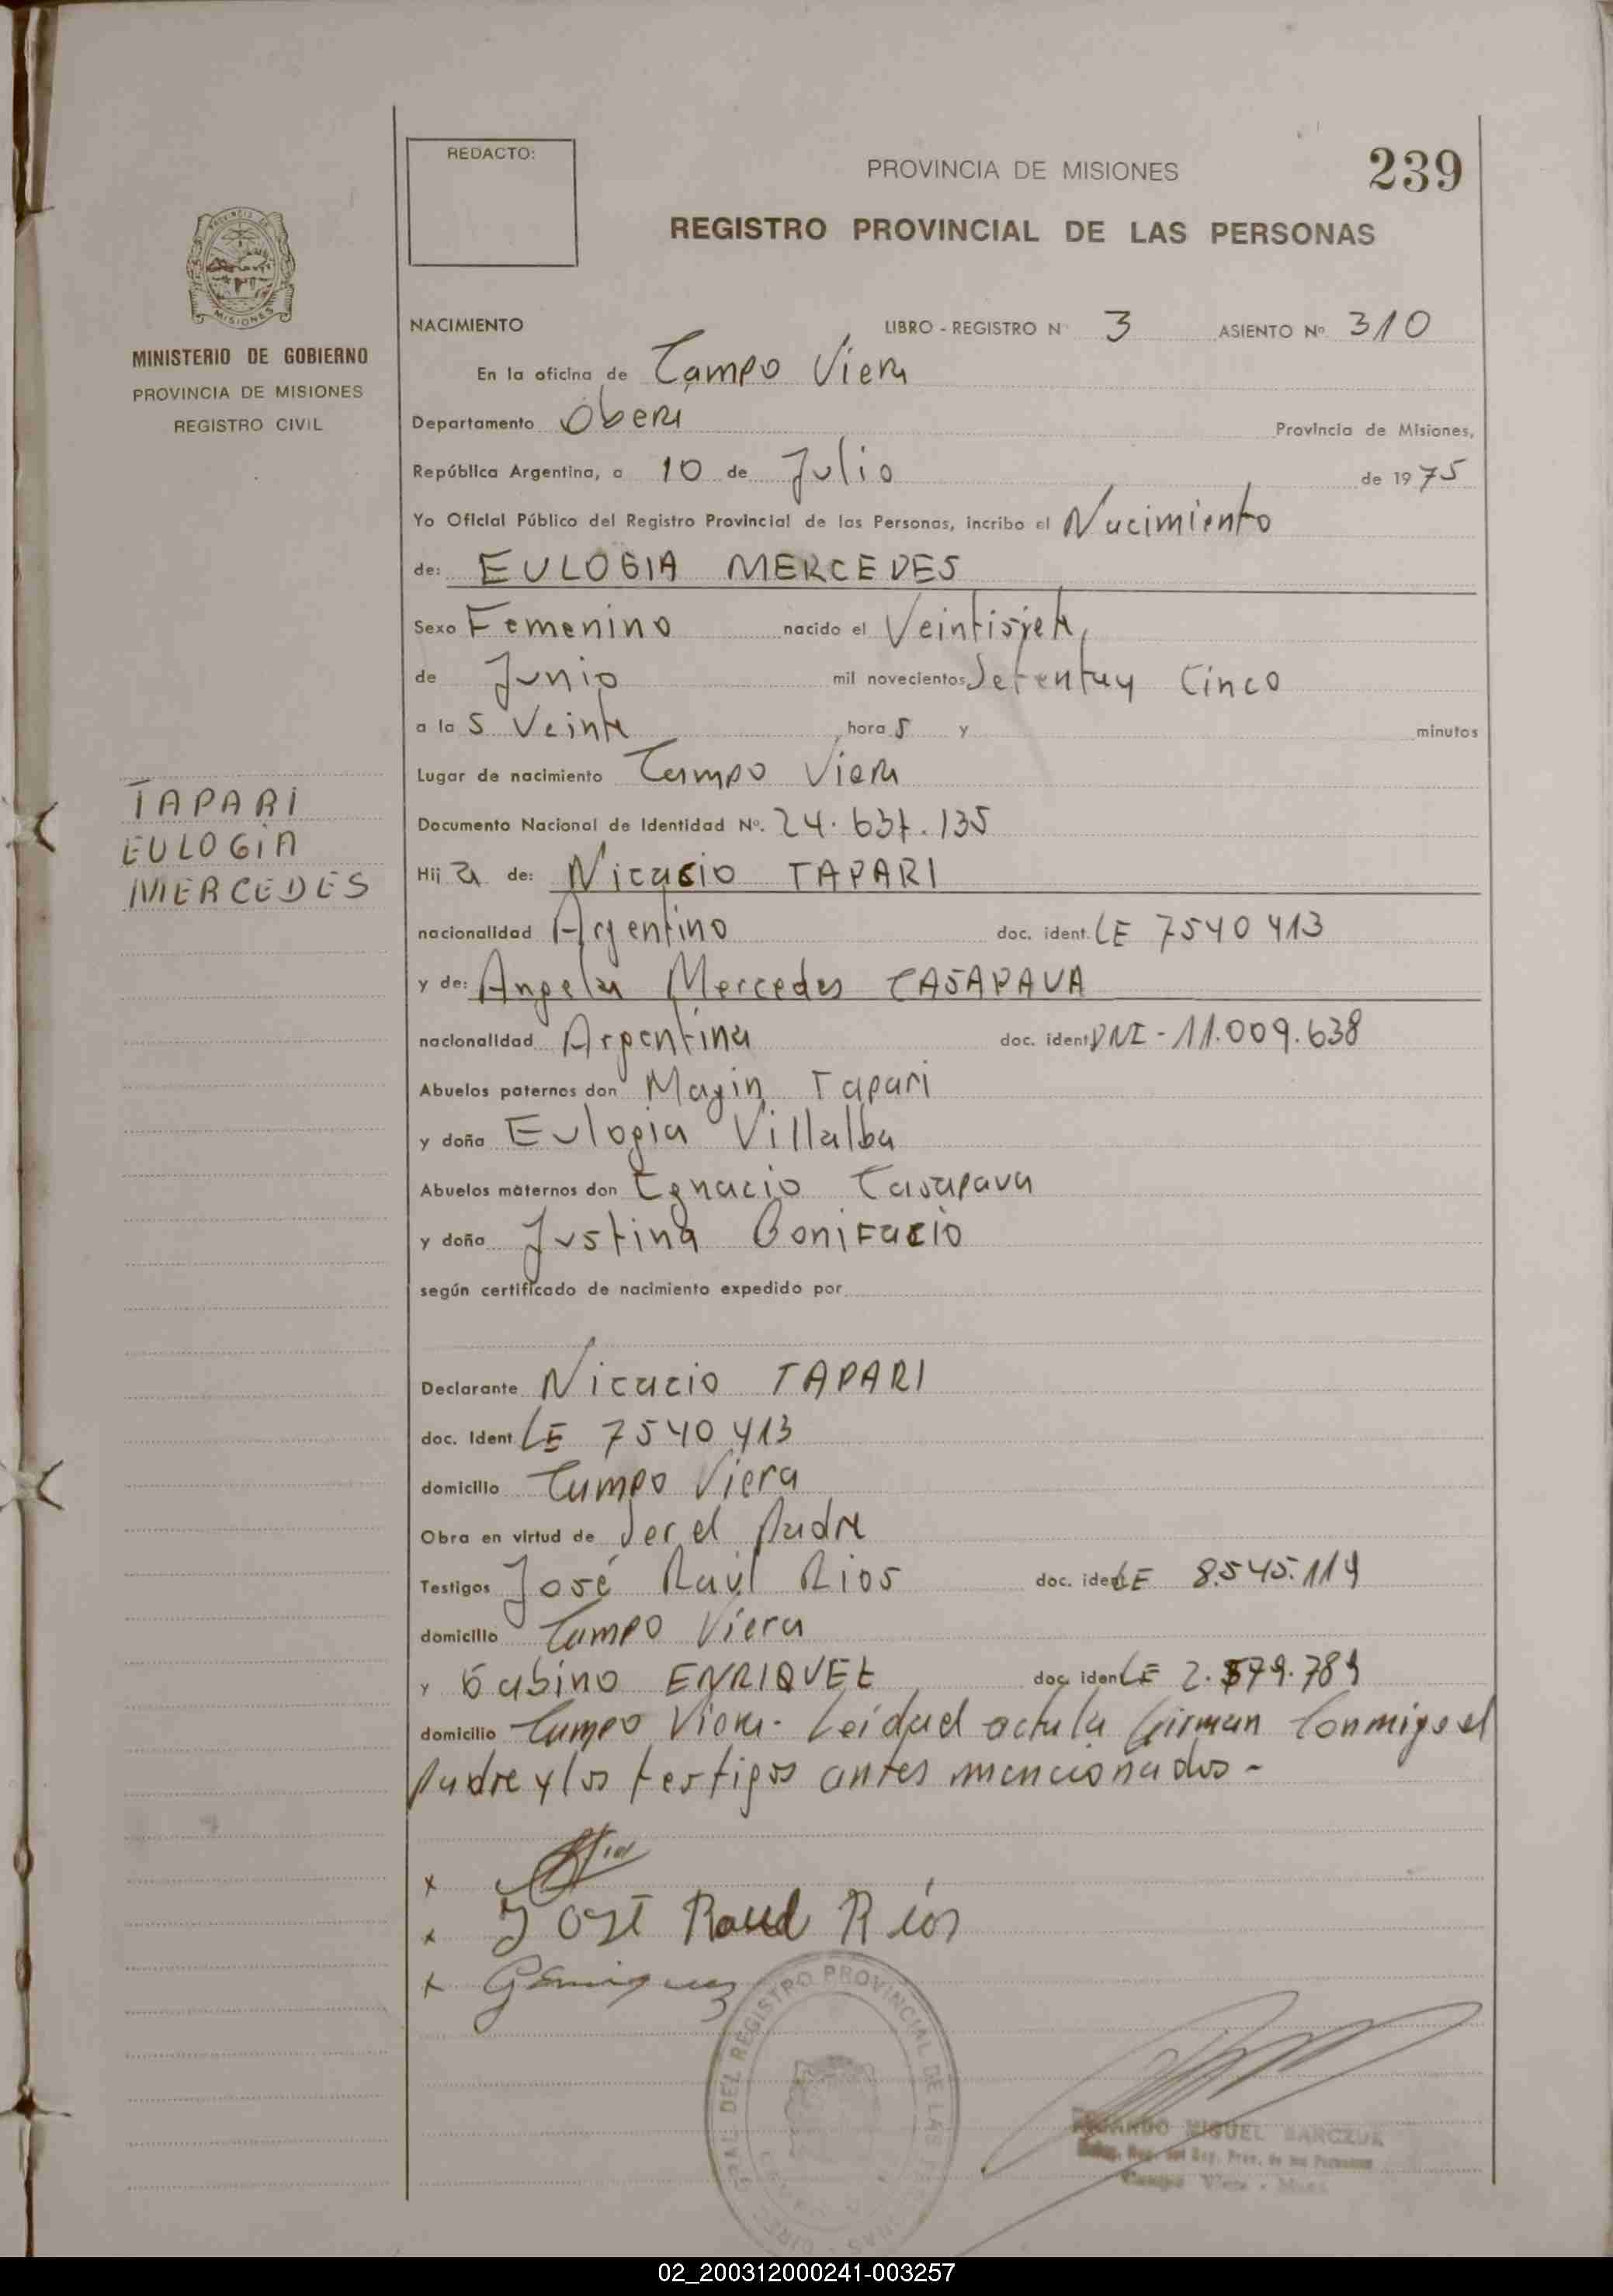 REDACTO:
PROVINCIA DE MISIONES
239
REGISTRO PROVINCIAL DE LAS PERSONAS
MISIONES
MINISTERIO DE GOBIERNO
PROVINCIA DE MISIONES
REGISTRO CIVIL
NACIMIENTO LIBRO - REGISTRO Nº 3 ASIENTO Nº 310
En la oficina de Campo Viera
Departamento Obera Provincia de Misiones,
República Argentina, a 10 de Julio de 1975
Yo Oficial Público del Registro Provincial de las Personas, incribo el Nacimiento
de: EULOGIA MERCEDES
Sexo Femenino nacido el Veintisiete,
de Junio mil novecientos Setentay Cinco
a la s Veinte hora s y minutos
Lugar de nacimiento Campo Viera
TAPARI
EULOGIA
MERCEDES
Documento Nacional de Identidad Nº. 24.637.135
Hij a de: Nicacio TAPARI
nacionalidad Argentino doc. ident. LE 7540413
y de: Angela Mercedes CASAPAVA
nacionalidad Argentina doc. ident DNI - 11.009.638
Abuelos paternos don Magin Tapari
y doña Eulogia Villalba
Abuelos maternos don Ignacio Casapava
y doña Justina Bonifacio
según certificado de nacimiento expedido por
Declarante Nicacio TAPARI
doc. Ident LE 7540413
domicilio Campo Viera
Obra en virtud de Ser el Padre
Testigos José Raúl Rios doc. ident LE 8.545.114
domicilio Campo Viera
y Gabino ENRIQUEZ doc. ident LE 2.579.789
domicilio Campo Viera. Leidad acta la Firman Conmigo el
Padre y los testigos antes mencionados -
x
x José Raul Ríos
x GEnriquez
REGISTRO PROVINCIAL DE LAS
MIGUEL
Campo Viera
02_200312000241-003257